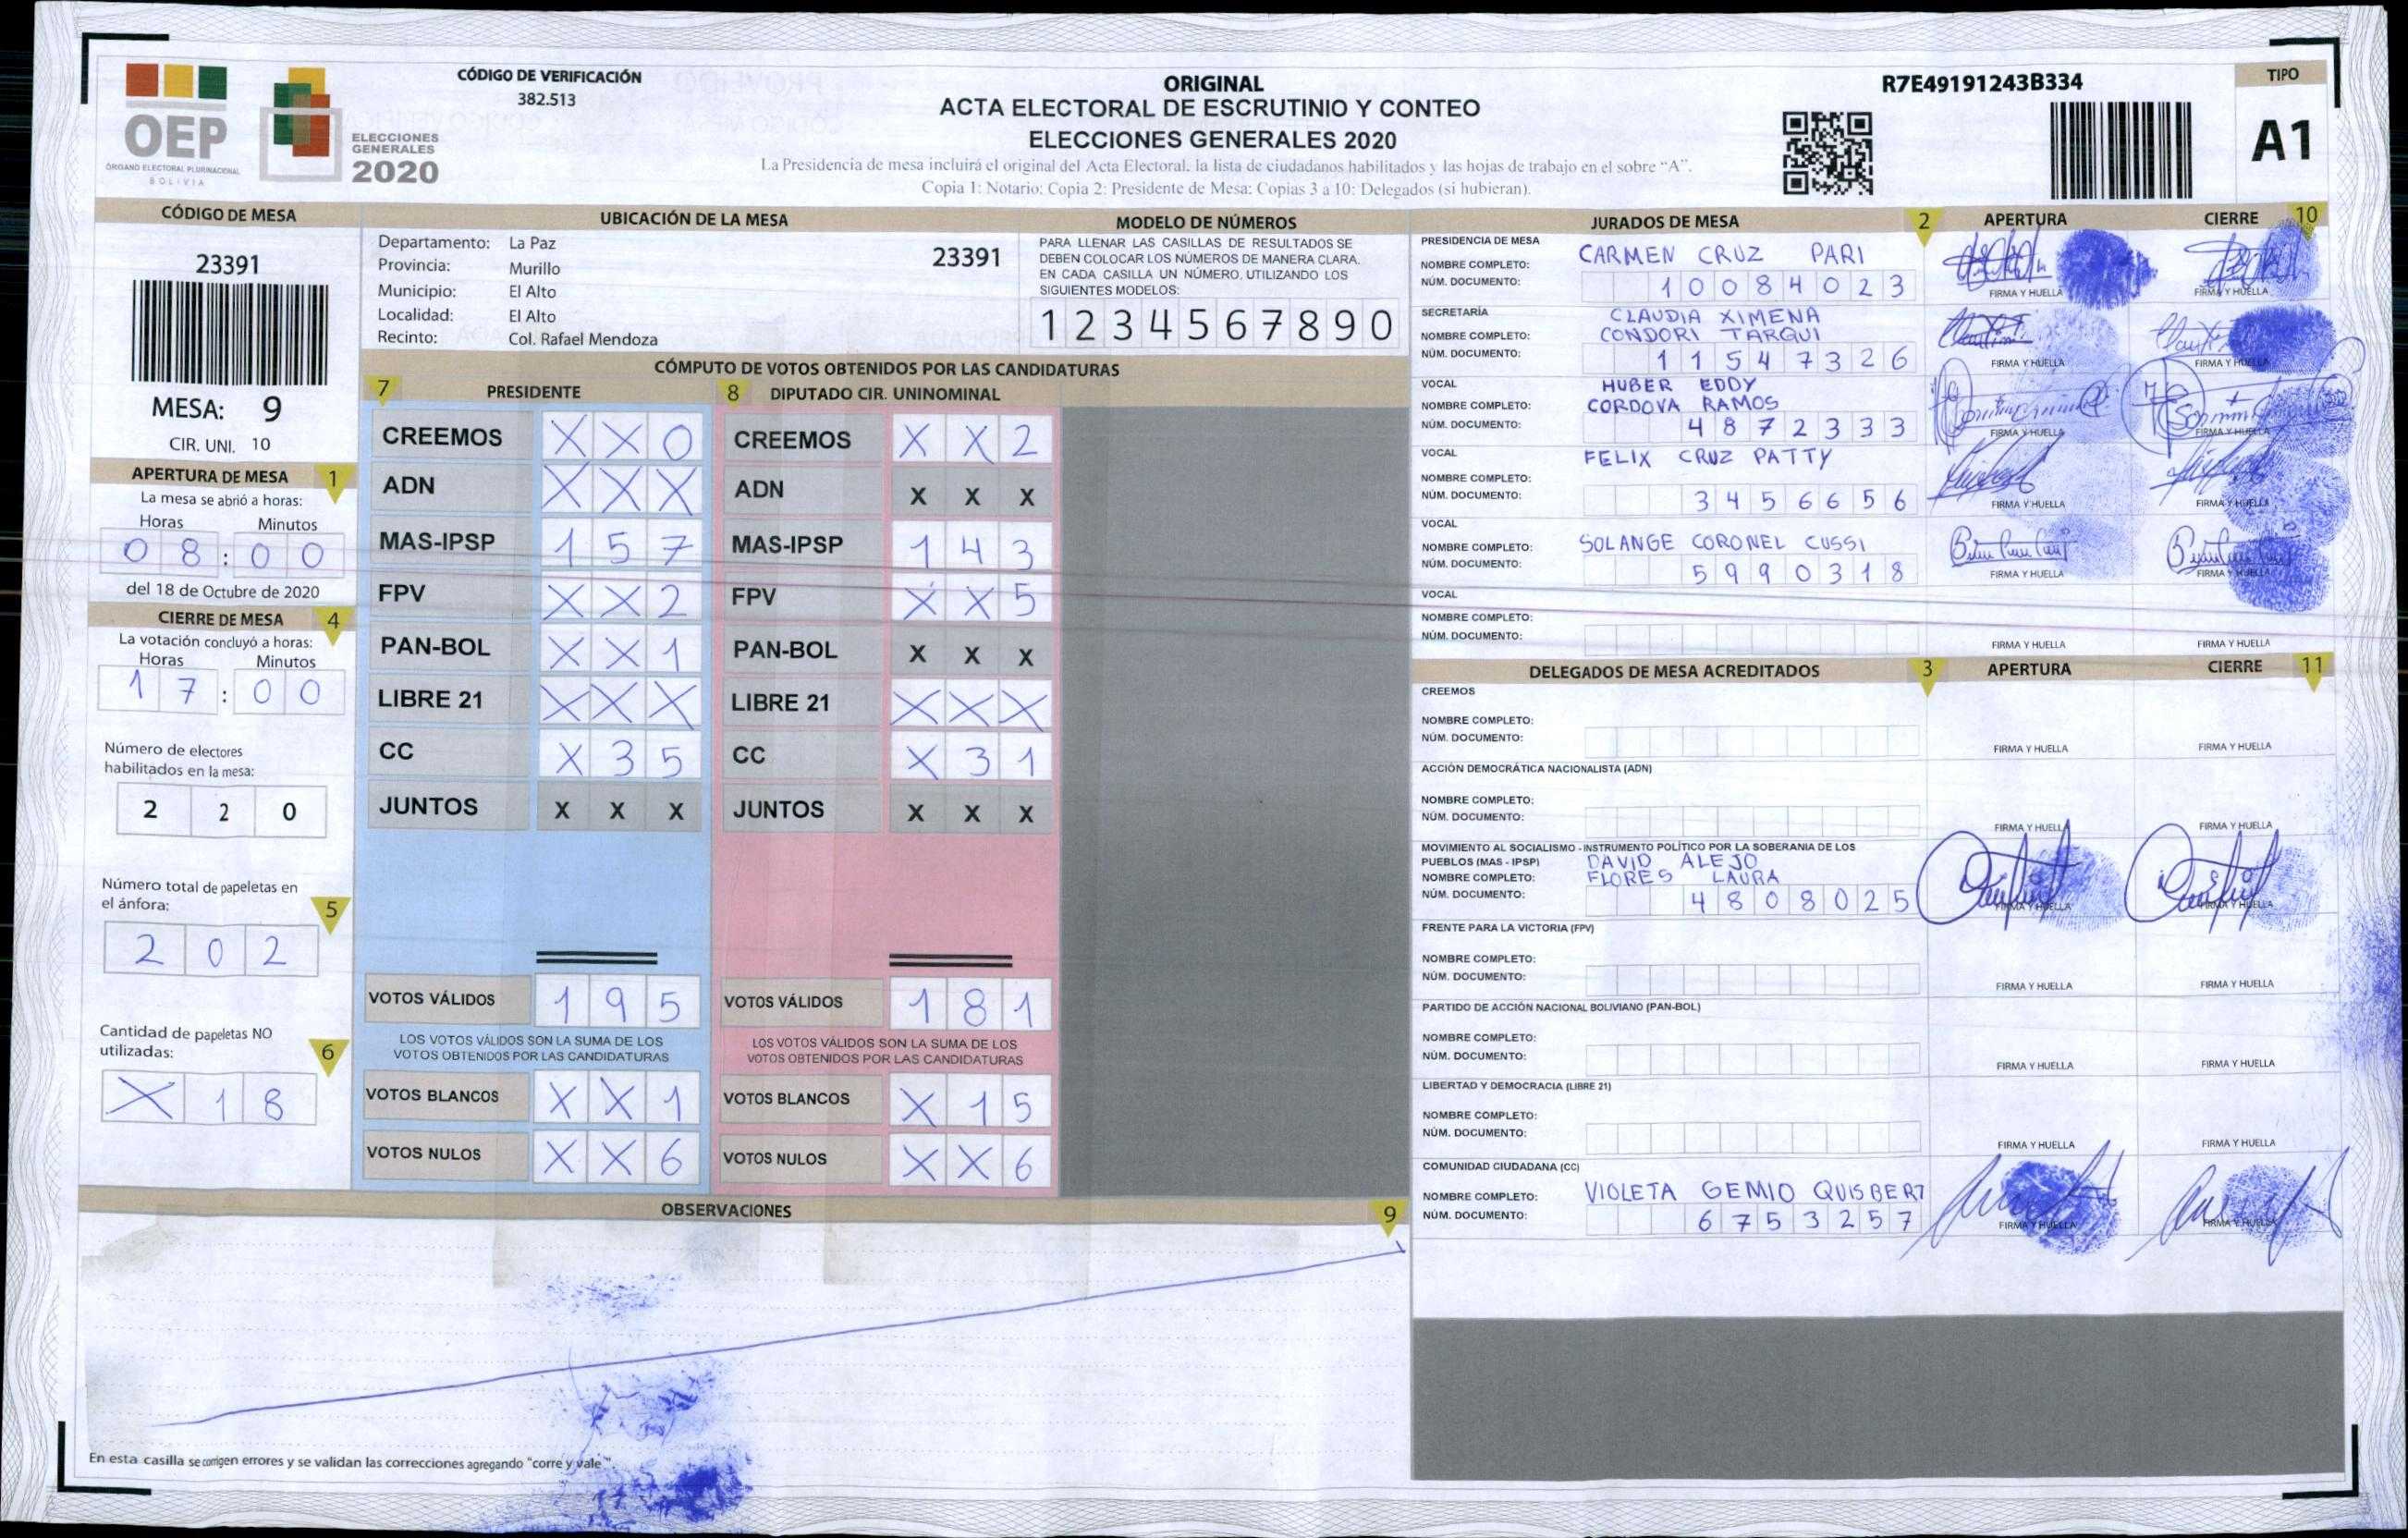 OEP
ÓRGANO ELECTORAL PLURINACIONAL
BOLIVIA
ELECCIONES
GENERALES
2020
CÓDIGO DE VERIFICACIÓN
382.513
ORIGINAL
ACTA ELECTORAL DE ESCRUTINIO Y CONTEO
ELECCIONES GENERALES 2020
La Presidencia de mesa incluirá el original del Acta Electoral, la lista de ciudadanos habilitados y las hojas de trabajo en el sobre "A".
Copia 1: Notario; Copia 2: Presidente de Mesa; Copias 3 a 10: Delegados (si hubieran).
R7E49191243B334
TIPO
A1
CÓDIGO DE MESA
23391
MESA: 9
CIR. UNI. 10
APERTURA DE MESA 1
La mesa se abrió a horas:
Horas Minutos
0 8 : 0 0
del 18 de Octubre de 2020
CIERRE DE MESA 4
La votación concluyó a horas:
Horas Minutos
1 7 : 0 0
Número de electores
habilitados en la mesa:
2 2 0
Número total de papeletas en
el ánfora: 5
2 0 2
Cantidad de papeletas NO
utilizadas: 6
X 1 8
UBICACIÓN DE LA MESA
Departamento: La Paz 23391
Provincia: Murillo
Municipio: El Alto
Localidad: El Alto
Recinto: Col. Rafael Mendoza
MODELO DE NÚMEROS
PARA LLENAR LAS CASILLAS DE RESULTADOS SE
DEBEN COLOCAR LOS NÚMEROS DE MANERA CLARA.
EN CADA CASILLA UN NÚMERO, UTILIZANDO LOS
SIGUIENTES MODELOS:
1 2 3 4 5 6 7 8 9 0
CÓMPUTO DE VOTOS OBTENIDOS POR LAS CANDIDATURAS
7 PRESIDENTE
CREEMOS X X 0
ADN X X X
MAS-IPSP 1 5 7
FPV X X 2
PAN-BOL X X 1
LIBRE 21 X X X
CC X 3 5
JUNTOS X X X
VOTOS VÁLIDOS 1 9 5
LOS VOTOS VÁLIDOS SON LA SUMA DE LOS
VOTOS OBTENIDOS POR LAS CANDIDATURAS
VOTOS BLANCOS X X 1
VOTOS NULOS X X 6
8 DIPUTADO CIR. UNINOMINAL
CREEMOS X X 2
ADN X X X
MAS-IPSP 1 4 3
FPV X X 5
PAN-BOL X X X
LIBRE 21 X X X
CC X 3 1
JUNTOS X X X
VOTOS VÁLIDOS 1 8 1
LOS VOTOS VÁLIDOS SON LA SUMA DE LOS
VOTOS OBTENIDOS POR LAS CANDIDATURAS
VOTOS BLANCOS X 1 5
VOTOS NULOS X X 6
OBSERVACIONES 9
En esta casilla se corrigen errores y se validan las correcciones agregando "corre y vale"
JURADOS DE MESA 2 APERTURA CIERRE 10
PRESIDENCIA DE MESA
NOMBRE COMPLETO: CARMEN CRUZ PARI
NÚM. DOCUMENTO: 1 0 0 8 4 0 2 3
FIRMA Y HUELLA FIRMA Y HUELLA
SECRETARÍA
CLAUDIA XIMENA
NOMBRE COMPLETO: CONDORI TARQUI
NÚM. DOCUMENTO: 1 1 5 4 7 3 2 6
FIRMA Y HUELLA FIRMA Y HUELLA
VOCAL
HUBER EDDY
NOMBRE COMPLETO: CORDOVA RAMOS
NÚM. DOCUMENTO: 4 8 7 2 3 3 3
FIRMA Y HUELLA FIRMA Y HUELLA
VOCAL
FELIX CRUZ PATTY
NOMBRE COMPLETO:
NÚM. DOCUMENTO: 3 4 5 6 6 5 6
FIRMA Y HUELLA FIRMA Y HUELLA
VOCAL
NOMBRE COMPLETO: SOLANGE CORONEL CUSSI
NÚM. DOCUMENTO: 5 9 9 0 3 1 8
FIRMA Y HUELLA FIRMA Y HUELLA
VOCAL
NOMBRE COMPLETO:
NÚM. DOCUMENTO:
FIRMA Y HUELLA FIRMA Y HUELLA
DELEGADOS DE MESA ACREDITADOS 3 APERTURA CIERRE 11
CREEMOS
NOMBRE COMPLETO:
NÚM. DOCUMENTO:
FIRMA Y HUELLA FIRMA Y HUELLA
ACCIÓN DEMOCRÁTICA NACIONALISTA (ADN)
NOMBRE COMPLETO:
NÚM. DOCUMENTO:
FIRMA Y HUELLA FIRMA Y HUELLA
MOVIMIENTO AL SOCIALISMO - INSTRUMENTO POLÍTICO POR LA SOBERANIA DE LOS
PUEBLOS (MAS - IPSP) DAVID ALEJO
NOMBRE COMPLETO: FLORES LAURA
NÚM. DOCUMENTO: 4 8 0 8 0 2 5
FIRMA Y HUELLA FIRMA Y HUELLA
FRENTE PARA LA VICTORIA (FPV)
NOMBRE COMPLETO:
NÚM. DOCUMENTO:
FIRMA Y HUELLA FIRMA Y HUELLA
PARTIDO DE ACCIÓN NACIONAL BOLIVIANO (PAN-BOL)
NOMBRE COMPLETO:
NÚM. DOCUMENTO:
FIRMA Y HUELLA FIRMA Y HUELLA
LIBERTAD Y DEMOCRACIA (LIBRE 21)
NOMBRE COMPLETO:
NÚM. DOCUMENTO:
FIRMA Y HUELLA FIRMA Y HUELLA
COMUNIDAD CIUDADANA (CC)
NOMBRE COMPLETO: VIOLETA GEMIO QUISBERT
NÚM. DOCUMENTO: 6 7 5 3 2 5 7
FIRMA Y HUELLA FIRMA Y HUELLA